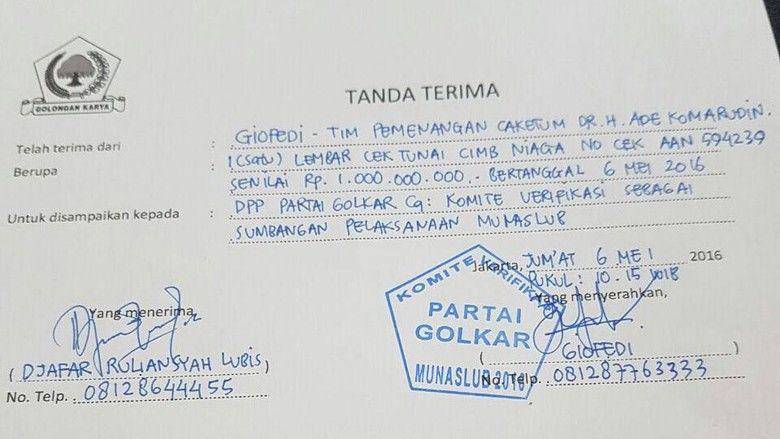 GOLONGAN KARYA
TANDA TERIMA
Telah terima dari : GIOFEDI - TIM PEMENANGAN CAKETUM DR. H. ADE KOMARUDIN.
Berupa : 1 (SATU) LEMBAR CEK TUNAI CIMB NIAGA NO CEK AAN 594239
SENILAI RP. 1.000.000.000,- BERTANGGAL 6 MEI 2016
Untuk disampaikan kepada : DPP PARTAI GOLKAR Cq: KOMITE VERIFIKASI SEBAGAI
SUMBANGAN PELAKSANAAN MUNASLUB
Jakarta, JUM'AT 6 MEI 2016
PUKUL : 10.15 WIB
Yang menerima,
Yang menyerahkan,
KOMITE VERIFIKASI
PARTAI
GOLKAR
MUNASLUB 2016
( DJAFAR RULIANSYAH LUBIS )
( GIOFEDI )
No. Telp. 08128644455
No. Telp. 081287763333